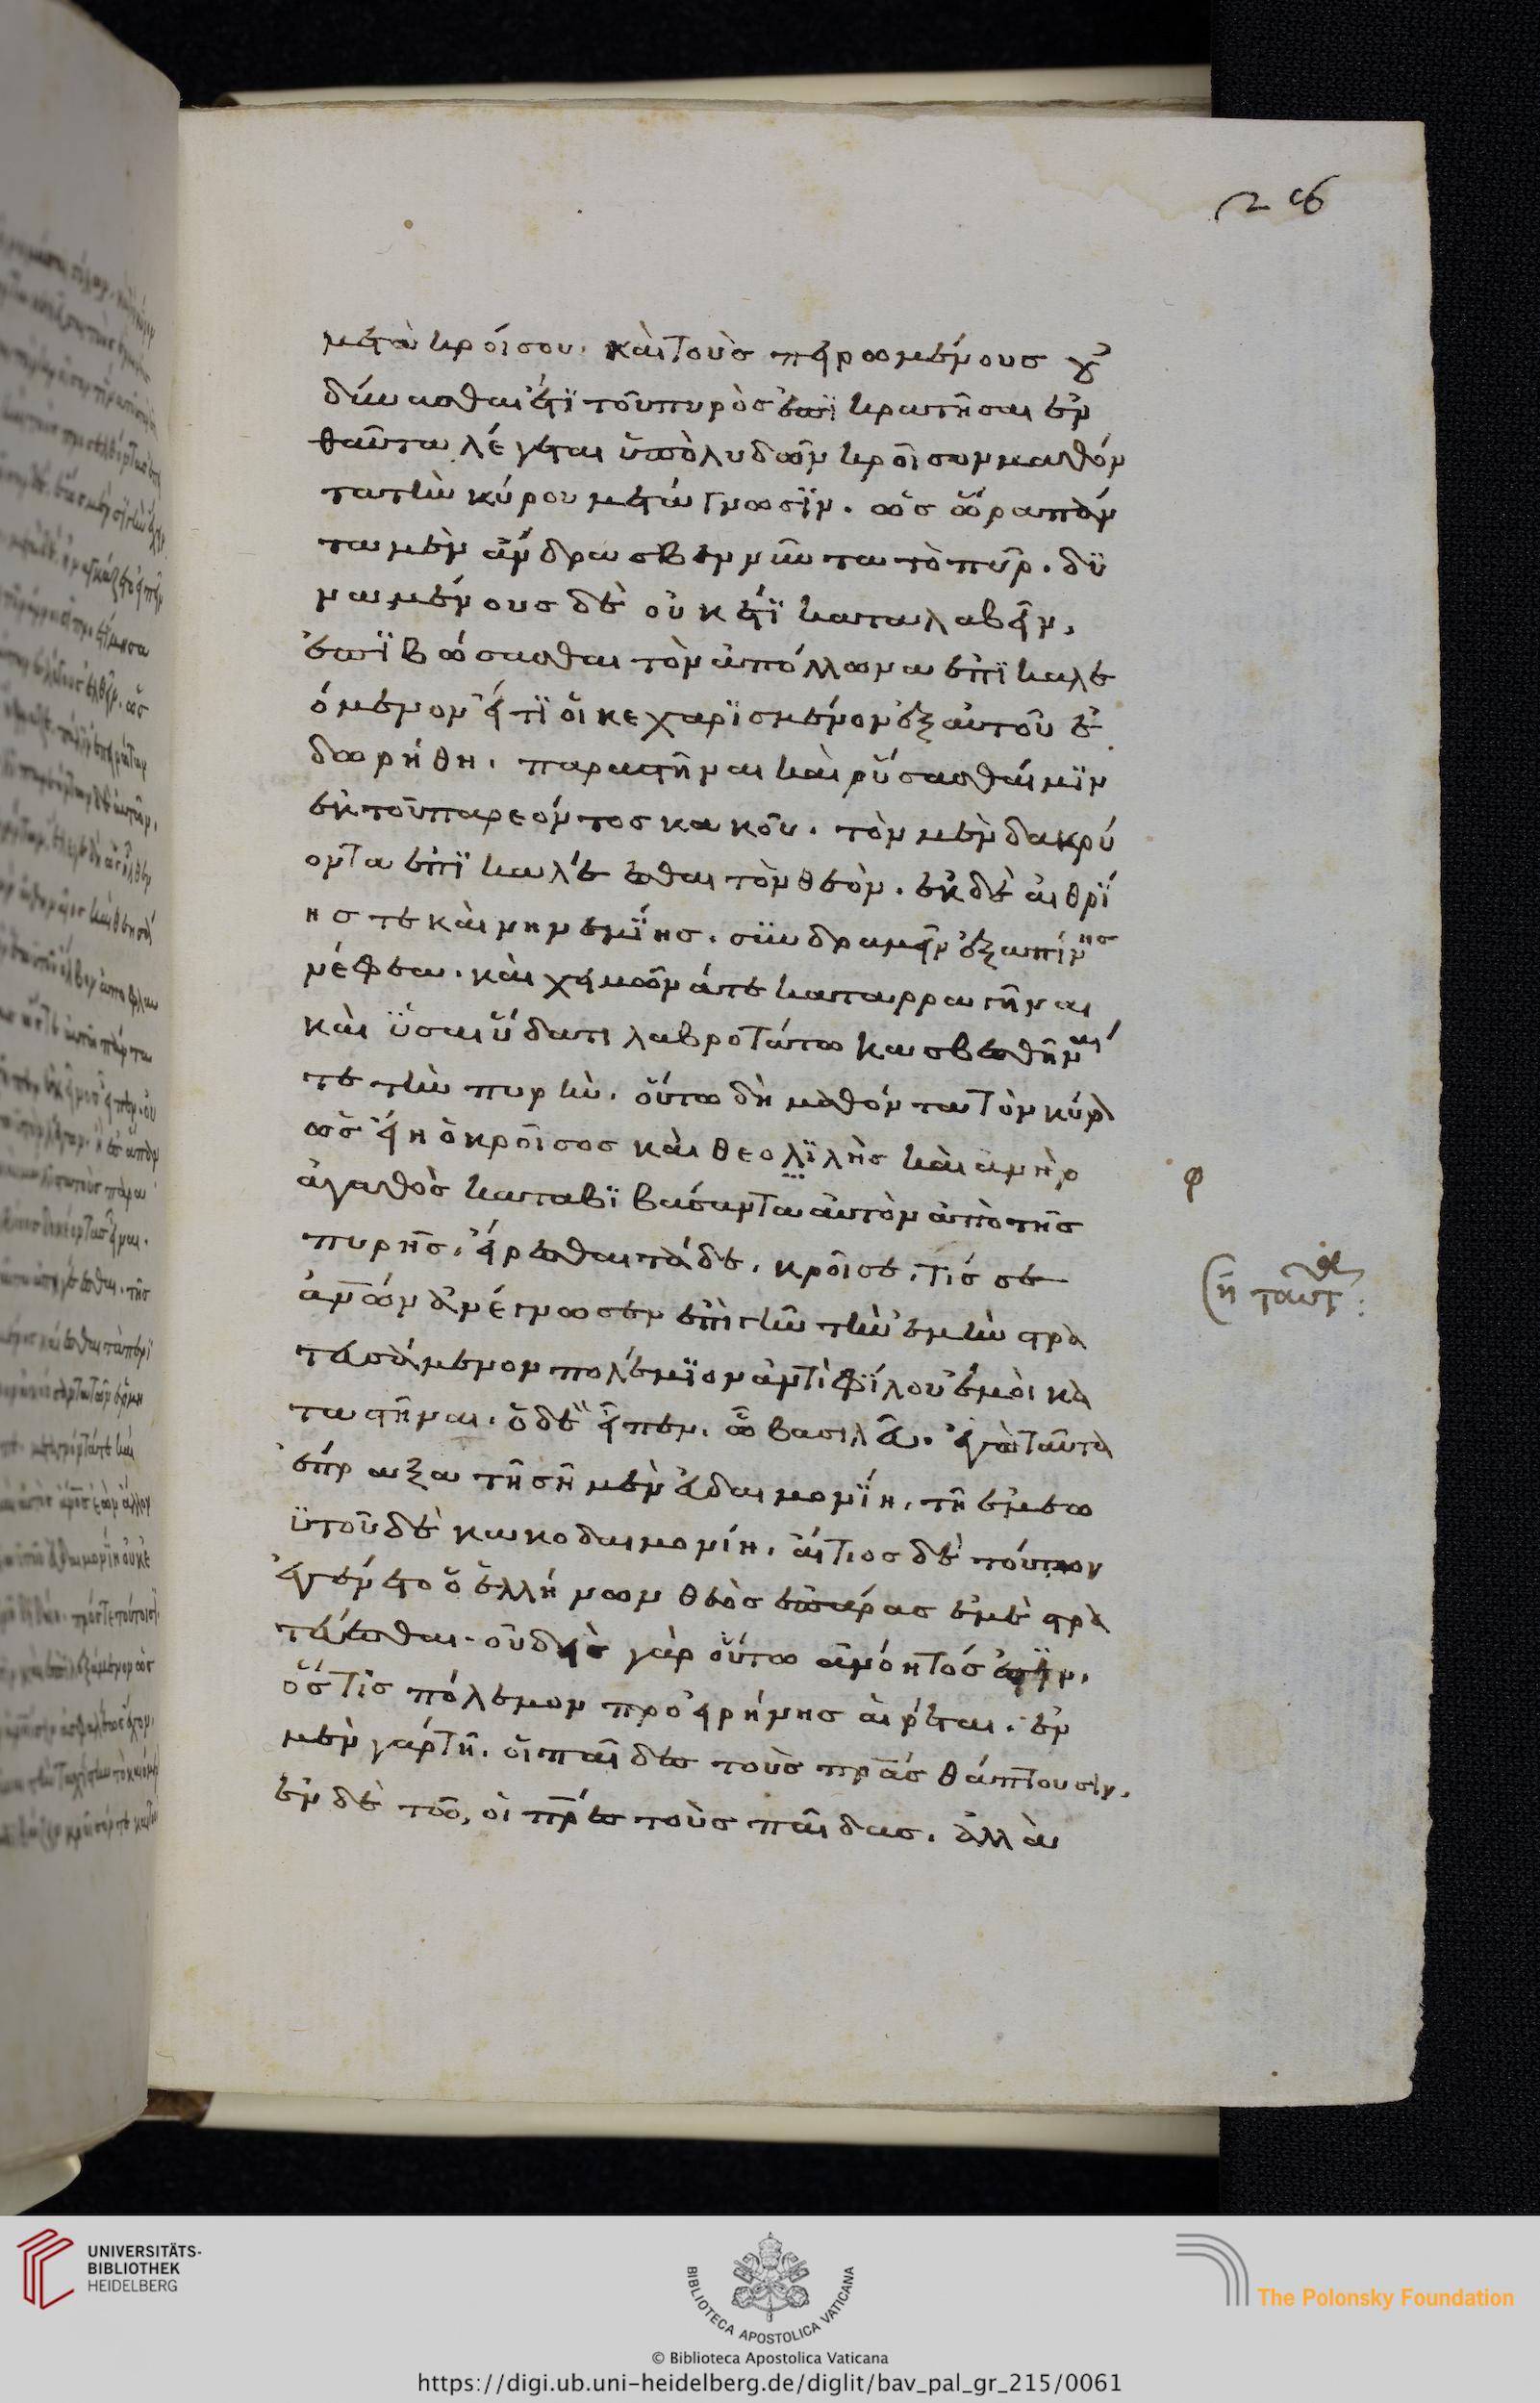 26
μετὰ κροίσου. καὶ τοὺς πειρωμένους οὐ
δύνασθαι ἔτϊ τοῦ πυρὸς ἐπϊκρατῆσαι ἐν
θαῦτα λέγεται ὑπὸ λυδῶν κροῖσον μαθόν
τα τὴν κύρου μετάγνωσϊν. ὡς ὥρα πάν
τα μὲν ἄνδρα σβεννῦντα τὸ πῦρ. δϋ
ναμένους δὲ οὐκέτϊ καταλαβεῖν,
ἐπϊβώσασθαι τὸν ἀπόλλωνα ἐπϊκαλε
όμενον εἴ τϊ οἱ κεχαρϊσμένον ἐξ αὐτοῦ ἐ
δωρήθη. παραστῆναι καὶ ῥύσασθαί μϊν
ἐκ τοῦ παρεόντος κακοῦ. τὸν μὲν δακρύ
οντα ἐπϊκαλέεσθαι τὸν θεόν. ἐκ δὲ αἰθρΐ
ης τε καὶ νηνεμΐης. συνδραμεῖν ἐξαπίνης
νέφεα. καὶ χειμῶνά τε καταρραγῆναι
καὶ ὗσαι ὕδατι λαβροτάτω κασβεσθῆναί
τε τὴν πυρὴν. οὕτω δὴ μαθόντα τὸν κύρον
ὡς εἴη ὁ κροῖσος καὶ θεολϊλὴς καὶ ἀνὴρ
φ
ἀγαθὸς καταβϊβάσαντα αὐτὸν ἀπὸ τῆς
πυρῆς. εἴρεσθαι τάδε. κροῖσε. τίς σε
ἀνῶν ἀνέγνωσεν ἐπὶ γῆν τὴν ἐμὴν στρα
τευσάμενον πολέμϊον ἀντὶ φΐλου ἐμοὶ κα
ταστῆναι. ὁ δὲ εἶπεν. ὦ βασιλεῦ. ἐγὼ ταῦτα
ἔπραξα τῆ σῆ μὲν εὐδαιμονΐη. τῆ ἐμεω
ϋτοῦ δὲ κακοδαιμονίη. αἴτιος δὲ τούτων
ἐγένετο ὁ ἑλλήνων θεὸς ἐπάρας ἐμὲ στρα
τεύεσθαι. οὐδεὶς γὰρ οὕτω ἀνόητός ἐστϊν.
ὅστις πόλεμον πρὸ εἰρήνης αἱρέεται. ἐν
μὲν γάρ τῆ. οἱ παῖδες τοὺς πρ̅ας θάπτουσϊν.
ἐν δὲ τῶ, οἱ πρ̅ες τοὺς παῖδας. ἀλλὰ
UNIVERSITÄTS-
BIBLIOTHEK
HEIDELBERG
BIBLIOTECA APOSTOLICA VATICANA
© Biblioteca Apostolica Vaticana
The Polonsky Foundation
https://digi.ub.uni-heidelberg.de/diglit/bav_pal_gr_215/0061